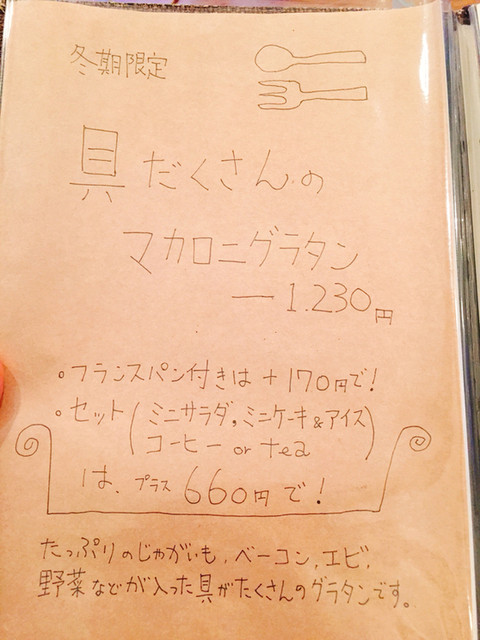 冬期限定
具だくさんの
マカロニグラタン
― 1.230円
・フランスパン付きは +170円で!
・セット(ミニサラダ,ミニケーキ&アイス
コーヒー or tea)
は、プラス 660円で!
たっぷりのじゃがいも,ベーコン,エビ,
野菜などが入った具がたくさんのグラタンです。